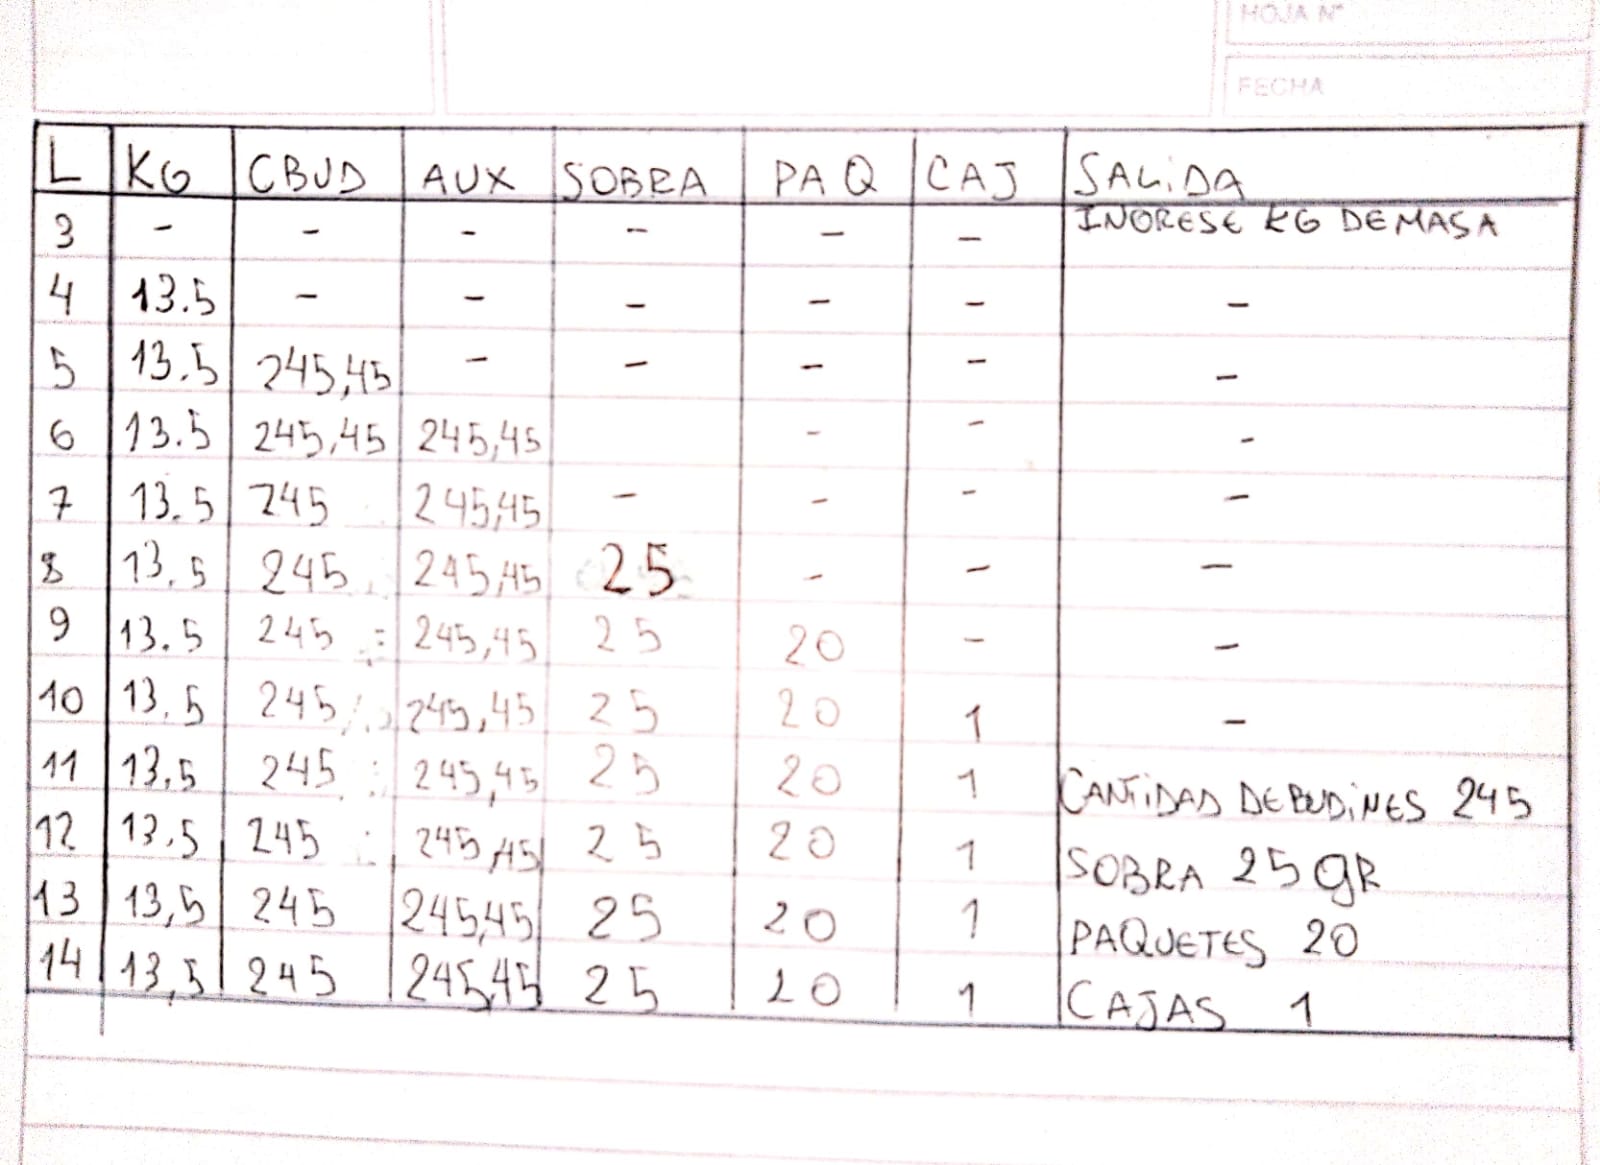 HOJA N°
FECHA
L KG CBUD AUX SOBRA PAQ CAJ SALIDA
3 - - - - - - INGRESE KG DE MASA
4 13.5 - - - - - -
5 13.5 245,45 - - - - -
6 13.5 245,45 245,45 - - -
7 13.5 245 245,45 - - - -
8 13,5 245 245,45 25 - - -
9 13.5 245 245,45 25 20 - -
10 13,5 245 245,45 25 20 1 -
11 13,5 245 245,45 25 20 1 CANTIDAD DE BUDINES 245
12 13,5 245 245,45 25 20 1 SOBRA 25 gR
13 13,5 245 245,45 25 20 1 PAQUETES 20
14 13,5 245 245,45 25 20 1 CAJAS 1